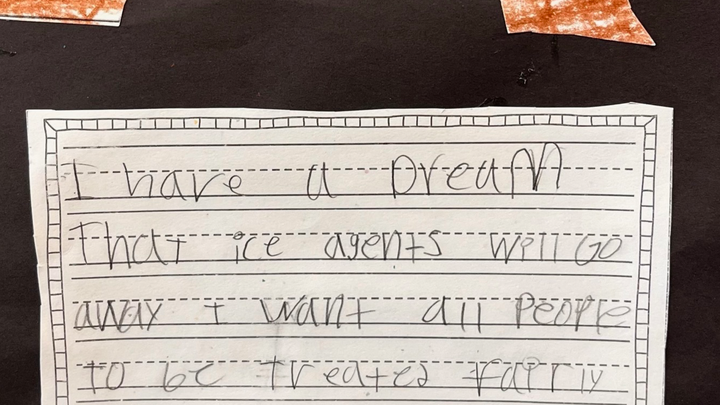 I have a Dream
That ice agents will Go
away I want all PeoPle
to be treated fairly